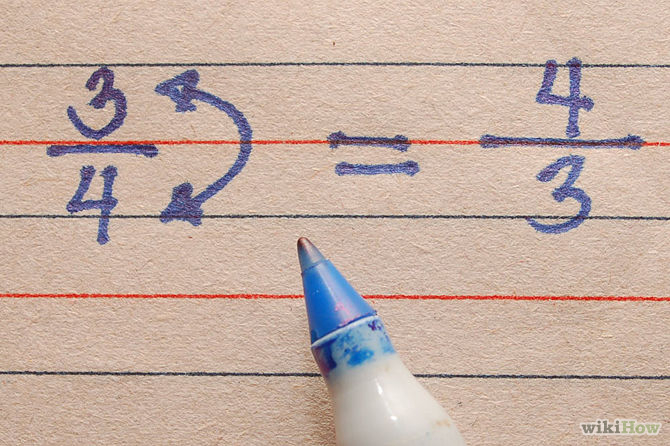 3/4 = 4/3
wikiHow